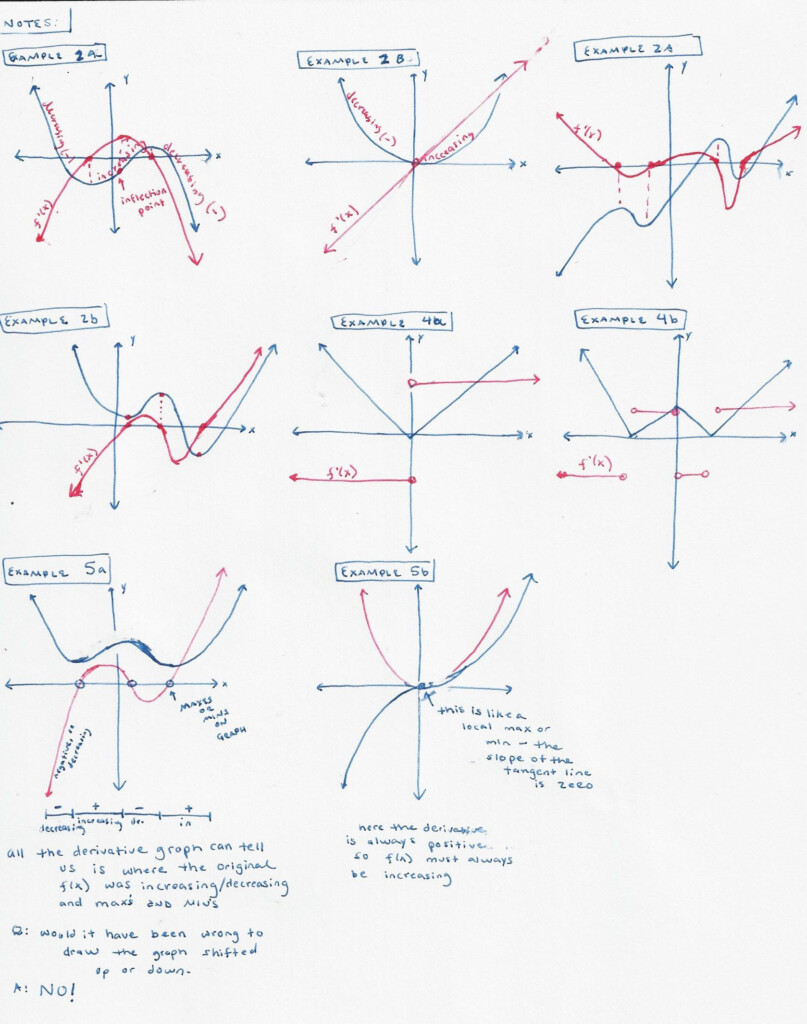 NOTES:
EXAMPLE 2a
EXAMPLE 2B
EXAMPLE 2A
y
decreasing (-)
increasing
decreasing (-)
x
inflection
point
f'(x)
decreasing (-)
increasing
x
f'(x)
y
f'(x)
x
EXAMPLE 2b
EXAMPLE 4a
EXAMPLE 4b
y
x
f'(x)
y
x
f'(x)
y
x
f'(x)
EXAMPLE 5a
EXAMPLE 5b
y
x
MAXES
OR
MINS
ON
GRAPH
negative so
decreasing
this is like a
local max or
min - the
slope of the
tangent line
is zero
- + - +
decreasing increasing de. in
all the derivative graph can tell
us is where the original
f(x) was increasing/decreasing
and max's and min's
here the derivative
is always positive...
so f(x) must always
be increasing
Q: would it have been wrong to
draw the graph shifted
up or down.
A: NO!